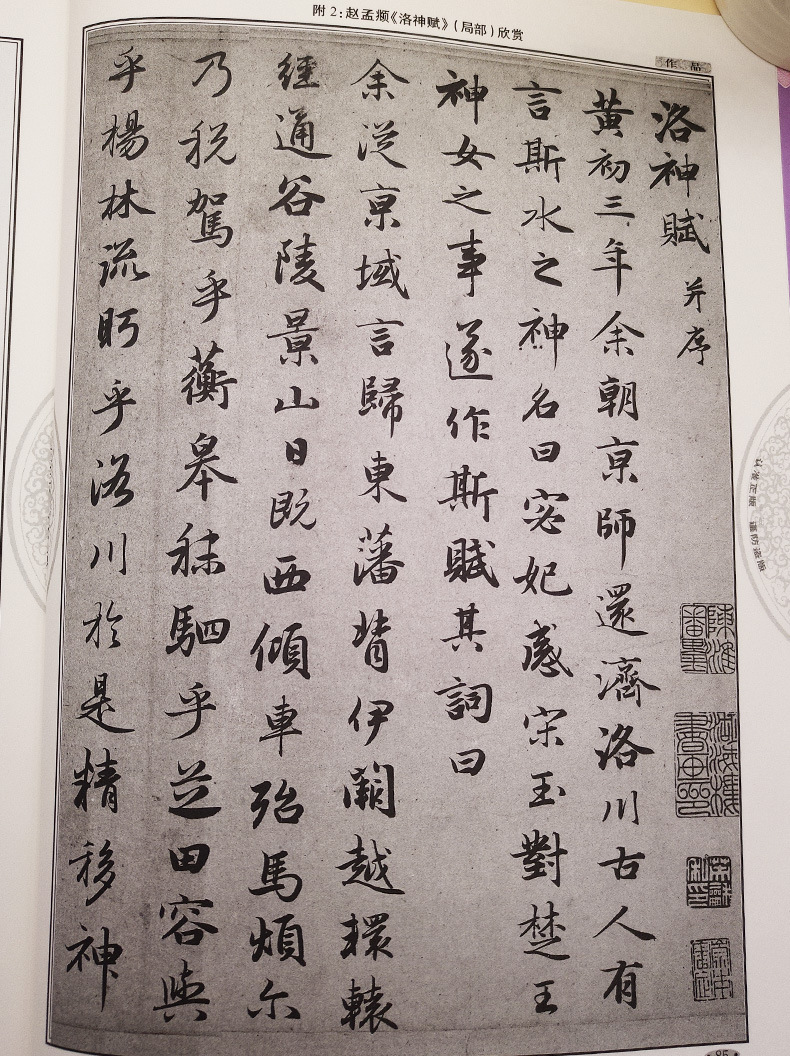 附2:赵孟頫《洛神赋》(局部)欣赏
作品
洛神賦 并序
黄初三年余朝京師還濟洛川古人有
言斯水之神名曰宓妃感宋玉對楚王
神女之事遂作斯賦其詞曰
余従京域言歸東藩背伊闕越轘轅
經通谷陵景山日既西傾車殆馬煩尔
乃税駕乎蘅皋秣駟乎芝田容與
乎楊林流眄乎洛川於是精移神
85